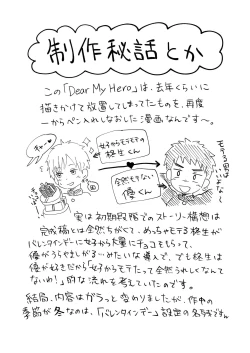 制作秘話とか
この「Dear My Hero」は、去年くらいに
描きかけて放置してしまってたものを、再度
一からペン入れしなおした漫画なんです〜。
女子からモテモテの
柊生くん
全然モテない
優くん
実は初期段階でのストーリー構想は
完成稿とは全然ちがくて、めっちゃモテる柊生が
バレンタインデーに女子から大量にチョコをもらって、
優がうらやましがる…みたいな導入で、でも柊生は
優が好きだから「女子からモテたって全然うれしくなんて
ないわ!」的な流れを考えていたのです。
結局、内容はがらっと変わりましたが、作中の
季節が冬なのは、「バレンタインデー」設定の名残ですね